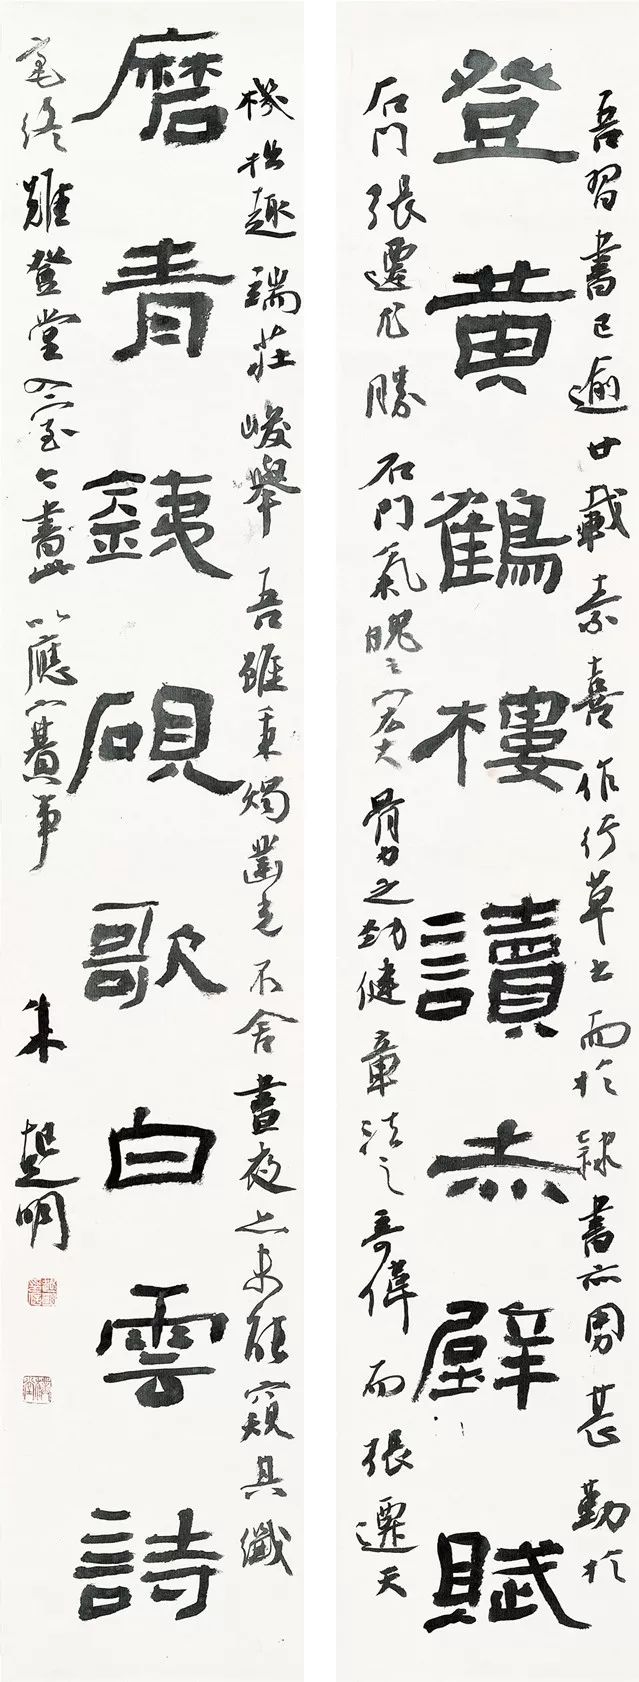 登黃鶴樓讀赤壁賦
磨青銕硯歌白雲詩
吾習書已逾廿載素喜作行草書而於隸書亦甚勤於
石門張遷尤勝石門氣魄之宏大骨力之勁健章法之奇偉而張遷天
機拙趣端莊峻舉吾雖秉燭鑿光不舍晝夜亦未能窺其纖
毫終難登堂入室今書此以應賽事
朱明